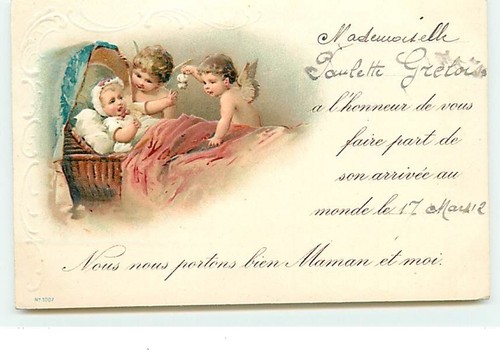 Mademoiselle
Paulette
a l'honneur de vous
faire part de
son arrivée au
monde le 17 Mars 12
Nous nous portons bien Maman et moi.